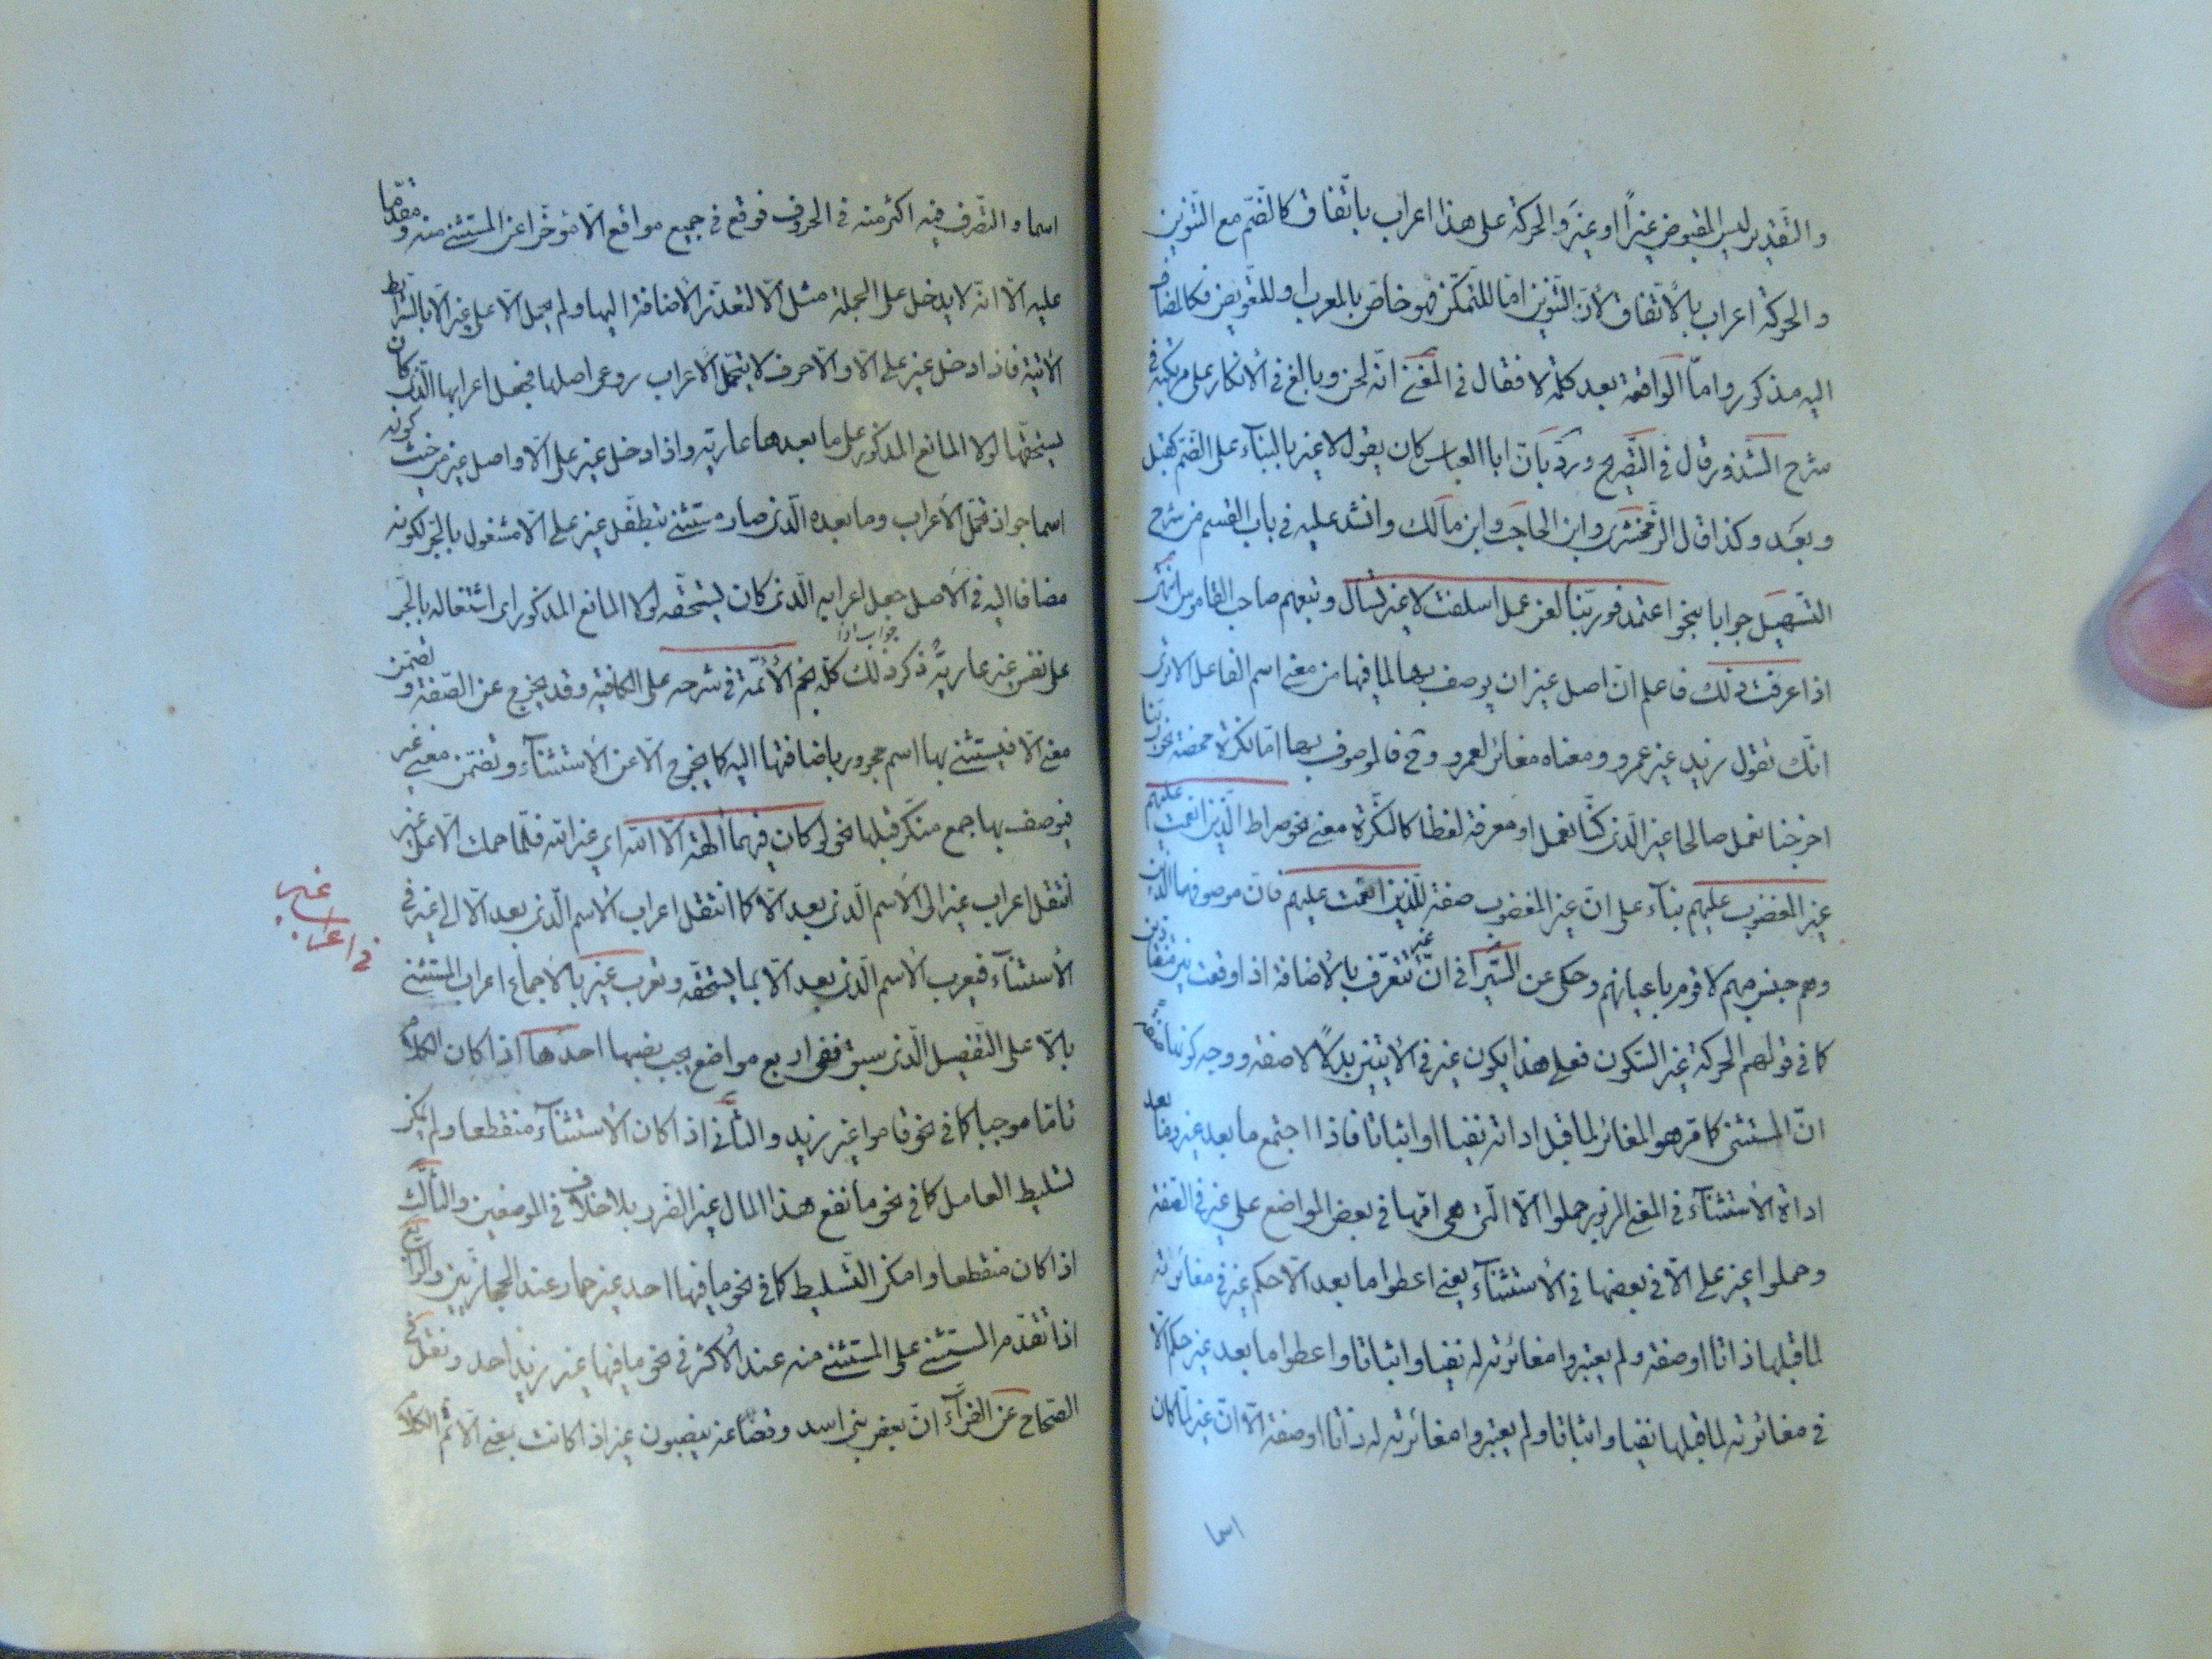 والتقدير ليس المقبوض غيراً او غيرَ والحركة على هذا اعراب باتّفاق كالضّم مع التنوين
والحركة اعراب بالأتّفاق لأنّ التّنوين امّا للتمكّن فهو خاصّ بالمعرب او للتّعويض فكالمضاف
اليه مذكور وامّا الواقعة بعد كلمة لا فقال في المغنى انّه لحن وبالغ في الأنكار على مرتكبه في
شرح الشّذور قال في التّصريح وردّ بانّ ابا العباس كان يقول لا غير بالبنآء على الضّم كقبل
وبعد وكذا قال الزّمخشرى وابن الحاجب وابن مالك وانشد عليه في باب القسم من شرح
التّسهيل جوابا بنجوا اعتمد فوربّنا لعن عمل اسلفت لا غير تسأل وتبعهم صاحب القاموس انتهى
اذا عرفت ذلك فاعلم انّ اصل غير ان يوصف بها لما فيها من معنى اسم الفاعل الا ترى
انّك تقول زيد غير عمرو ومعناه مغائر لعمرو وح فالموصوف بها امّا نكرة محضة نحو ربّنا
اخرجنا نعمل صالحا غير الّذى كنّا نعمل او معرفة لفظا كالنّكرة معنى نحو صراط الّذين انعمت عليهم
غير المغضوب عليهم بنآء على انّ غير المغضوب صفة للّذين انعمت عليهم فانّ موصوفها الّذين
وهم جنس مبهم لا قوم باعيانهم وحكى عن السّيرافى انّ غير تتعرّف بالأضافة اذا وقعت بين متضادّين
كما في قولهم الحركة غير السّكون فعلى هذا يكون غير في الأيتين بدلاً لا صفة ووجه كونها صفة
انّ المستثنى كما مرّ هو المغائر لما قبل اداته نفيا او اثباتا فاذا اجتمع ما بعد غير وما بعد
اداة الأستثنآء في المعنى المزبور حملوا الّا الّتى هى امّها في بعض المواضع على غير في الصّفة
وحملوا غير على الّا في بعضها في الأستثنآء يعنى اعطوا ما بعد الّا حكم غير في مغائرته
لما قبلها ذاتا او صفة ولم يعتبروا مغائرته له نفيا واثباتا واعطوا ما بعد غير حكم الّا
في مغائرته لما قبلها نفيا واثباتا ولم يعتبروا مغائرته له ذاتا او صفة الّا انّ غير لمّا كان
اسما
اسما والتّصرف فيه اكثر منه في الحروف فوقع في جميع مواقع الّا مؤخّرا عن المستثنى منه ومقدّما
عليه الّا انّه لا يدخل على الجملة مثل الّا لتعذّر الأضافة اليها ولم يحمل الّا على غير الّا بالشرائط
الأتية فاذا دخل غير على الّا والّا حرف لا يتحمّل الأعراب روعى اصلها فجعل اعرابها الّذى كان
يستحقّها لولا المانع المذكور على ما بعدها عارية واذا دخل غير على الّا واصل غير من حيث كونه
اسما جواز تحمّل الأعراب وما بعده الّذى صار مستثنى بتطفّل غير على الّا مشغول بالجرّ لكونه
مضافا اليه في الأصل جعل اعرابه الّذى كان يستحقّه لولا المانع المذكور اى اشتغاله بالجرّ
جواب اذا
على نفس غير عاريةً ذكر ذلك كلّه نجم الأئمّة في شرحه على الكافية وقد يخرج عن الصّفة وتضمّن
معنى الّا فيستثنى بها اسم مجرور باضافتها اليه كما يخرج الّا عن الأستثنآء وتضمّن معنى غير
فيوصف بها جمع منكّر قبلها نحو لو كان فيهما آلهة الّا اللّه اى غير اللّه فلمّا حملت الّا على غير
انتقل اعراب غير الى الأسم الّذى بعد الّا كما انتقل اعراب الأسم الّذى بعد الّا الى غير في
غير
في اعراب
الأستثنآء فيعرب الأسم الّذى بعد الّا بما يستحقّه وتعرب غير بالأجماع اعراب المستثنى
بالّا على التّفصيل الّذى سبق ففى اربع مواضع يجب نصبها احدها اذا كان الكلام
تامّا موجبا كما في نحو قاموا غير زيد والثّانى اذا كان الأستثنآء منقطعا ولم يمكن
تسليط العامل كما في نحو ما نفع هذا المال غير الضّرر بلا خلاف في الموضعين والثّالث
اذا كان منقطعا وامكن التّسليط كما في نحو ما فيها احد غير حمار عند الحجازيّين والرّابع
اذا تقدّم المستثنى على المستثنى منه عند الأكثر في نحو ما فيها غير زيد احد ونقل في
الصّحاح عن الفرّآء انّ بعض بنى اسد وقضاعة ينصبون غير اذا كانت بمعنى الّا تمّ الكلام